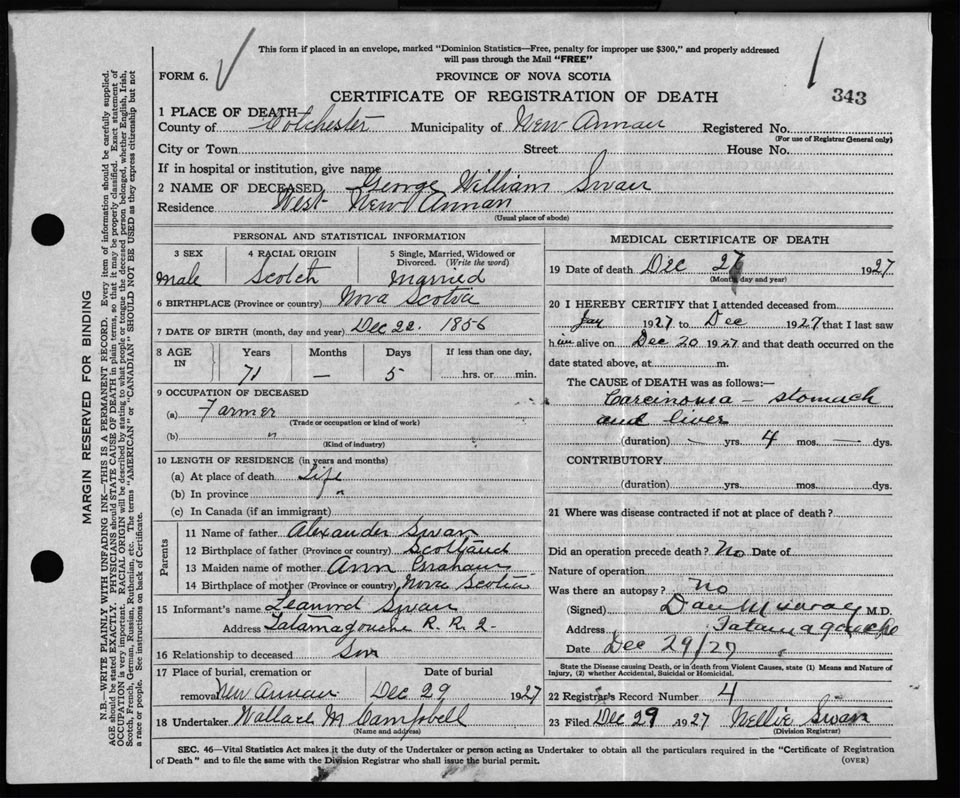 This form if placed in an envelope, marked "Dominion Statistics—Free, penalty for improper use $300," and properly addressed
will pass through the Mail "FREE"
FORM 6.
PROVINCE OF NOVA SCOTIA
CERTIFICATE OF REGISTRATION OF DEATH
343
1 PLACE OF DEATH
County of Colchester Municipality of New Annan Registered No.
(For use of Registrar General only)
City or Town Street House No.
If in hospital or institution, give name
2 NAME OF DECEASED George William Swan
Residence West New Annan
(Usual place of abode)
PERSONAL AND STATISTICAL INFORMATION
3 SEX 4 RACIAL ORIGIN 5 Single, Married, Widowed or Divorced. (Write the word)
Male Scotch Married
6 BIRTHPLACE (Province or country) Nova Scotia
7 DATE OF BIRTH (month, day and year) Dec 22. 1856
8 AGE IN Years Months Days If less than one day,
71 — 5 hrs. or min.
9 OCCUPATION OF DECEASED
(a) Farmer
(Trade or occupation or kind of work)
(b) "
(Kind of industry)
10 LENGTH OF RESIDENCE (in years and months)
(a) At place of death Life
(b) In province "
(c) In Canada (if an immigrant)
Parents
11 Name of father Alexander Swan
12 Birthplace of father (Province or country) Scotland
13 Maiden name of mother Ann Graham
14 Birthplace of mother (Province or country) Nova Scotia
15 Informant's name Leanord Swan
Address Tatamagouche R. R. 2.
16 Relationship to deceased Son
17 Place of burial, cremation or Date of burial
removal New Annan Dec 29 1927
18 Undertaker Wallace M Campbell
(Name and address)
MEDICAL CERTIFICATE OF DEATH
19 Date of death Dec 27 1927
(Month, day and year)
20 I HEREBY CERTIFY that I attended deceased from
Jan 1927 to Dec 1927 that I last saw
him alive on Dec 20 1927 and that death occurred on the
date stated above, at m.
The CAUSE of DEATH was as follows:—
Carcinoma — stomach
and liver
(duration) — yrs. 4 mos. — dys.
CONTRIBUTORY
(duration) yrs. mos. dys.
21 Where was disease contracted if not at place of death?
Did an operation precede death? No Date of
Nature of operation
Was there an autopsy? No
(Signed) Dan Murray M.D.
Address Tatamagouche
Date Dec 29/27
State the Disease causing Death, or in death from Violent Causes, state (1) Means and Nature of
Injury, (2) whether Accidental, Suicidal or Homicidal.
22 Registrar's Record Number 4
23 Filed Dec 29 1927 Nellie Swan
(Division Registrar)
SEC. 46—Vital Statistics Act makes it the duty of the Undertaker or person acting as Undertaker to obtain all the particulars required in the "Certificate of Registration
of Death" and to file the same with the Division Registrar who shall issue the burial permit. (OVER)
MARGIN RESERVED FOR BINDING
N.B.—WRITE PLAINLY WITH UNFADING INK—THIS IS A PERMANENT RECORD. Every item of information should be carefully supplied.
AGE should be stated EXACTLY. PHYSICIANS should STATE CAUSE OF DEATH in plain terms, so that it may be properly classified. Exact statement of
OCCUPATION is very important. RACIAL ORIGIN will be described by stating to what people or tongue the deceased person belonged, whether English, Irish,
Scotch, French, German, Russian, Ruthenian, etc. The terms "AMERICAN" or "CANADIAN" SHOULD NOT BE USED as they express citizenship but not
a race or people. See instructions on back of Certificate.